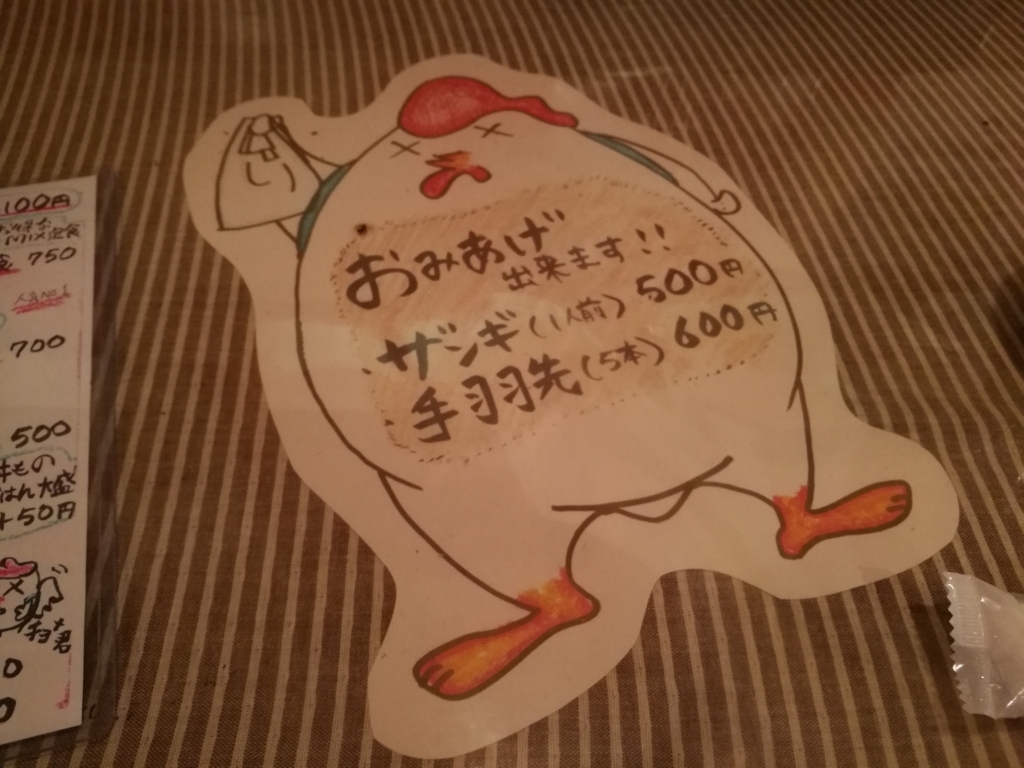 おみあげ
出来ます!!
ザンギ(1人前) 500円
手羽先(5本) 600円
100円
750
人気No.1
700
500
丼もの
ごはん大盛
+50円
チョキ君
0
0